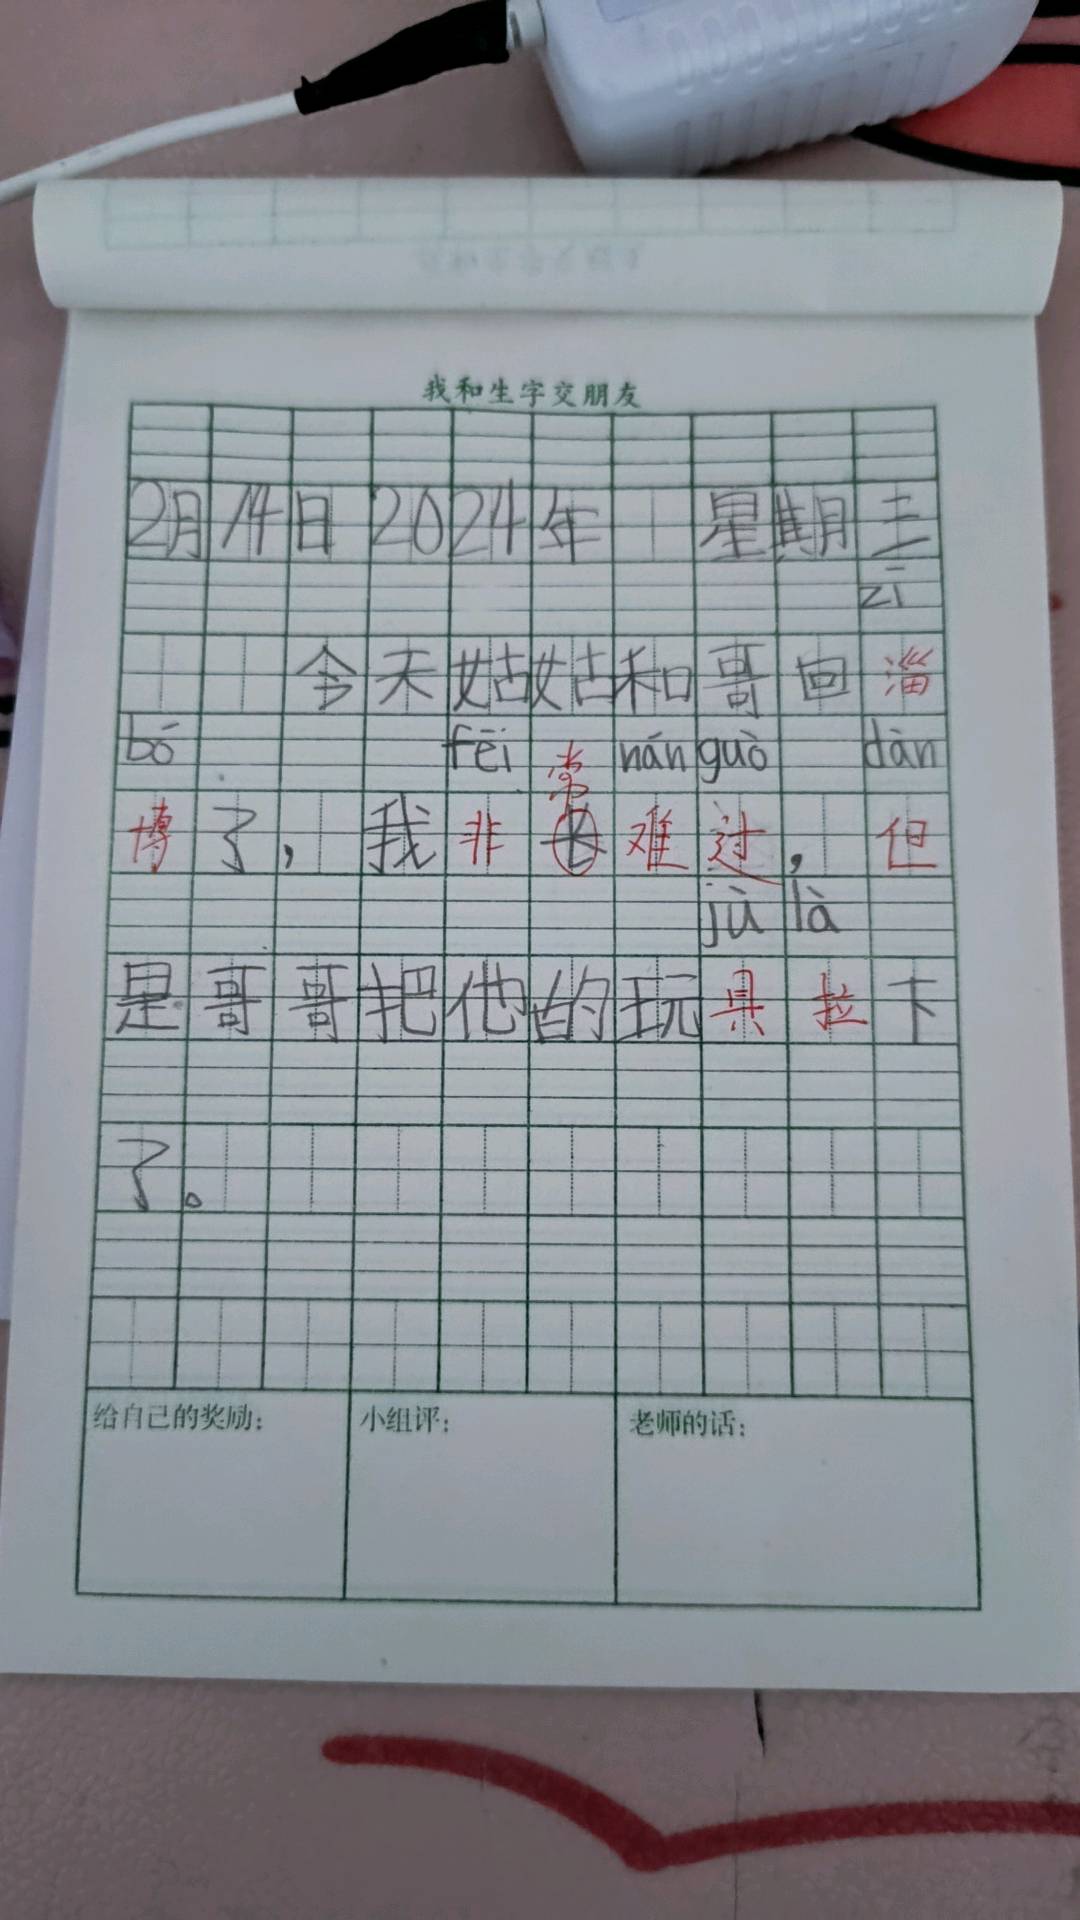 我和生字交朋友
2月14日 2024年 星期三
zī
今天姑姑和哥回淄
bó fēi 常 nán guò dàn
博了，我非长难过，但
jù là
是哥哥把他的玩具拉下
了。
给自己的奖励： 小组评： 老师的话：